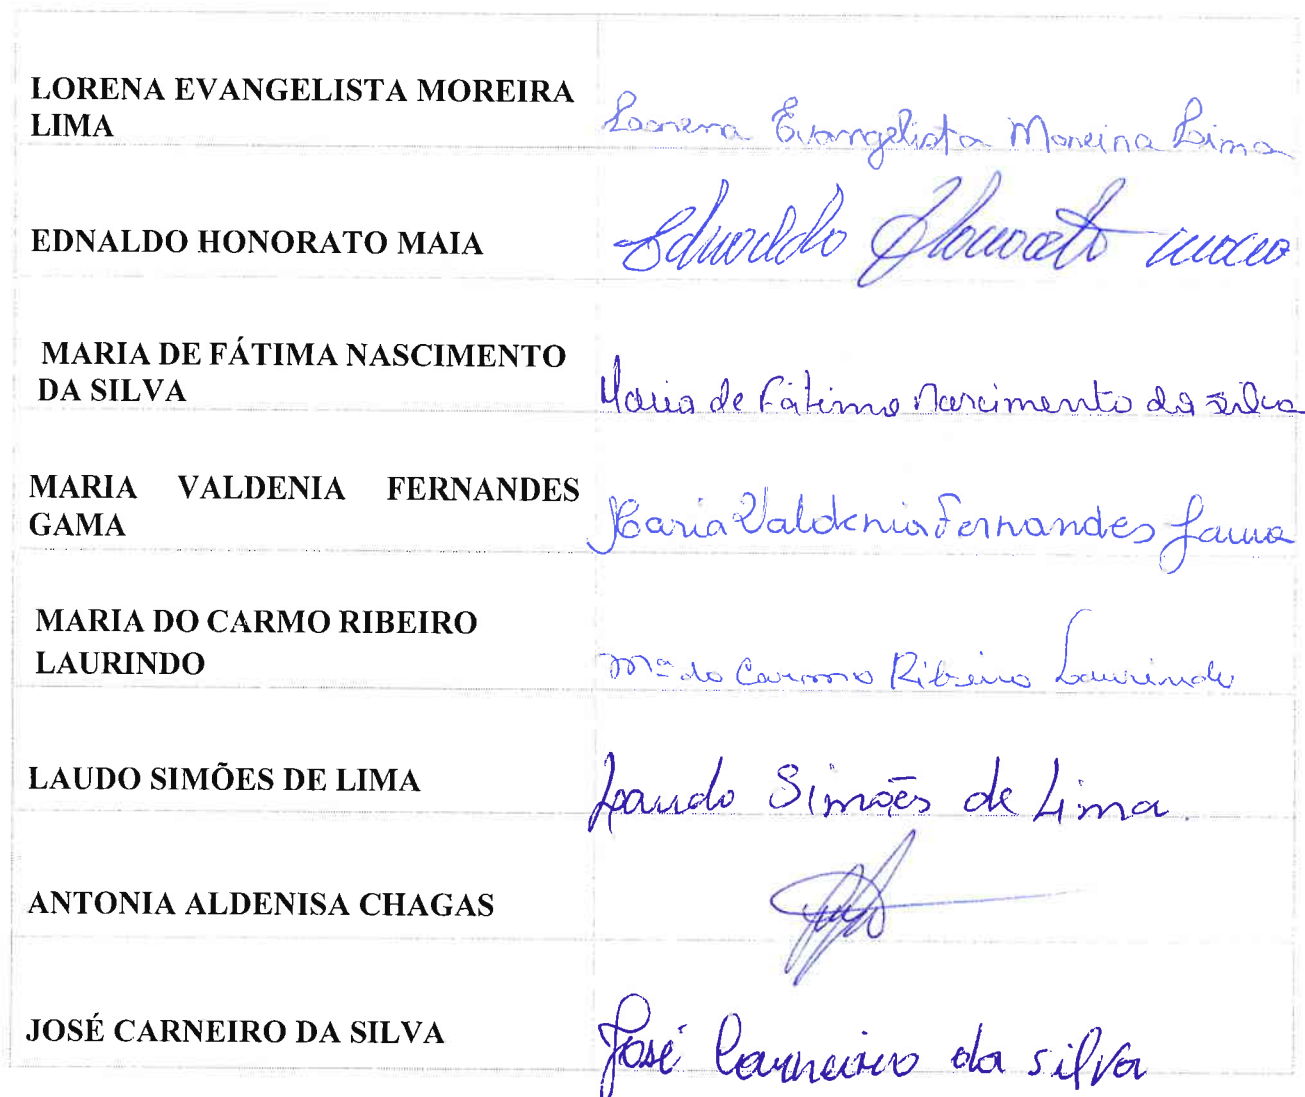 LORENA EVANGELISTA MOREIRA
LIMA
Lorena Evangelista Moreira Lima
EDNALDO HONORATO MAIA
Ednaldo Honorato Maia
MARIA DE FÁTIMA NASCIMENTO
DA SILVA
Maria de Fátima Nascimento da Silva
MARIA VALDENIA FERNANDES
GAMA
Maria Valdenia Fernandes Gama
MARIA DO CARMO RIBEIRO
LAURINDO
Mª do Carmo Ribeiro Laurindo
LAUDO SIMÕES DE LIMA
Laudo Simões de Lima.
ANTONIA ALDENISA CHAGAS
JOSÉ CARNEIRO DA SILVA
José Carneiro da Silva